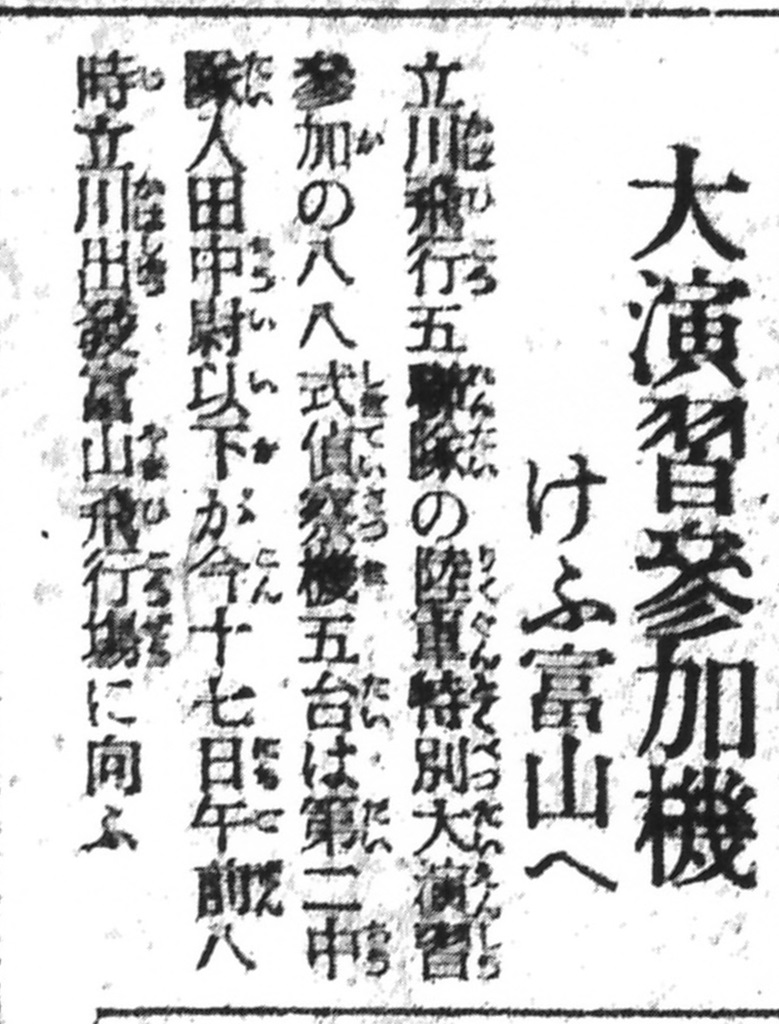 大演習參加機
けふ富山へ
立川飛行五聯隊の陸軍特別大演習
參加の八八式偵察機五台は第二中
隊入田中尉以下が今十七日午前八
時立川出發富山飛行場に向ふ